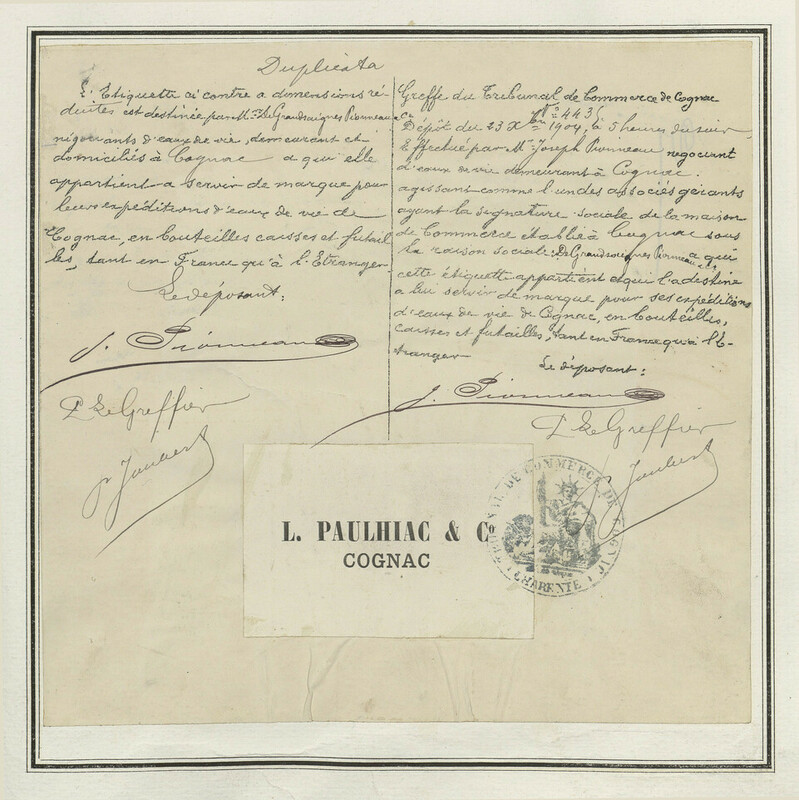 Duplicata
L'Etiquette ci contre a dimensions ré-
duites est destinée, par MM. De Grandsaignes Pionneau & Co
négociants d'eaux de vie, demeurant et
domiciliés à Cognac a qui elle
appartient a servir de marque pour
leurs expéditions d'eaux de vie de
Cognac, en bouteilles caisses et futail
les tant en France qu'à l'Etranger
Le déposant:
J. Pionneau
P. Le Greffier
P. Joubert
Greffe du Tribunal de Commerce de Cognac
No 443
Dépôt du 23 Xbre 1904, à 5 heures du soir
Effectué par Mr Joseph Pionneau negociant
d'eaux de vie demeurant à Cognac.
agissant comme l'un des associés gérants
ayant la signature sociale de la maison
de Commerce établie à Cognac sous
la raison sociale: De Grandsaignes Pionneau & Co a qui
cette étiquette appartient et qui l'a destine
a lui servir de marque pour ses expéditions
d'eaux de vie de Cognac, en bouteilles,
caisses et futailles, tant en France qu'à l'E-
tranger
Le déposant:
J. Pionneau
P. Le Greffier
Joubert
L. PAULHIAC & Co
COGNAC
TRIBUNAL DE COMMERCE DE COGNAC
(CHARENTE)